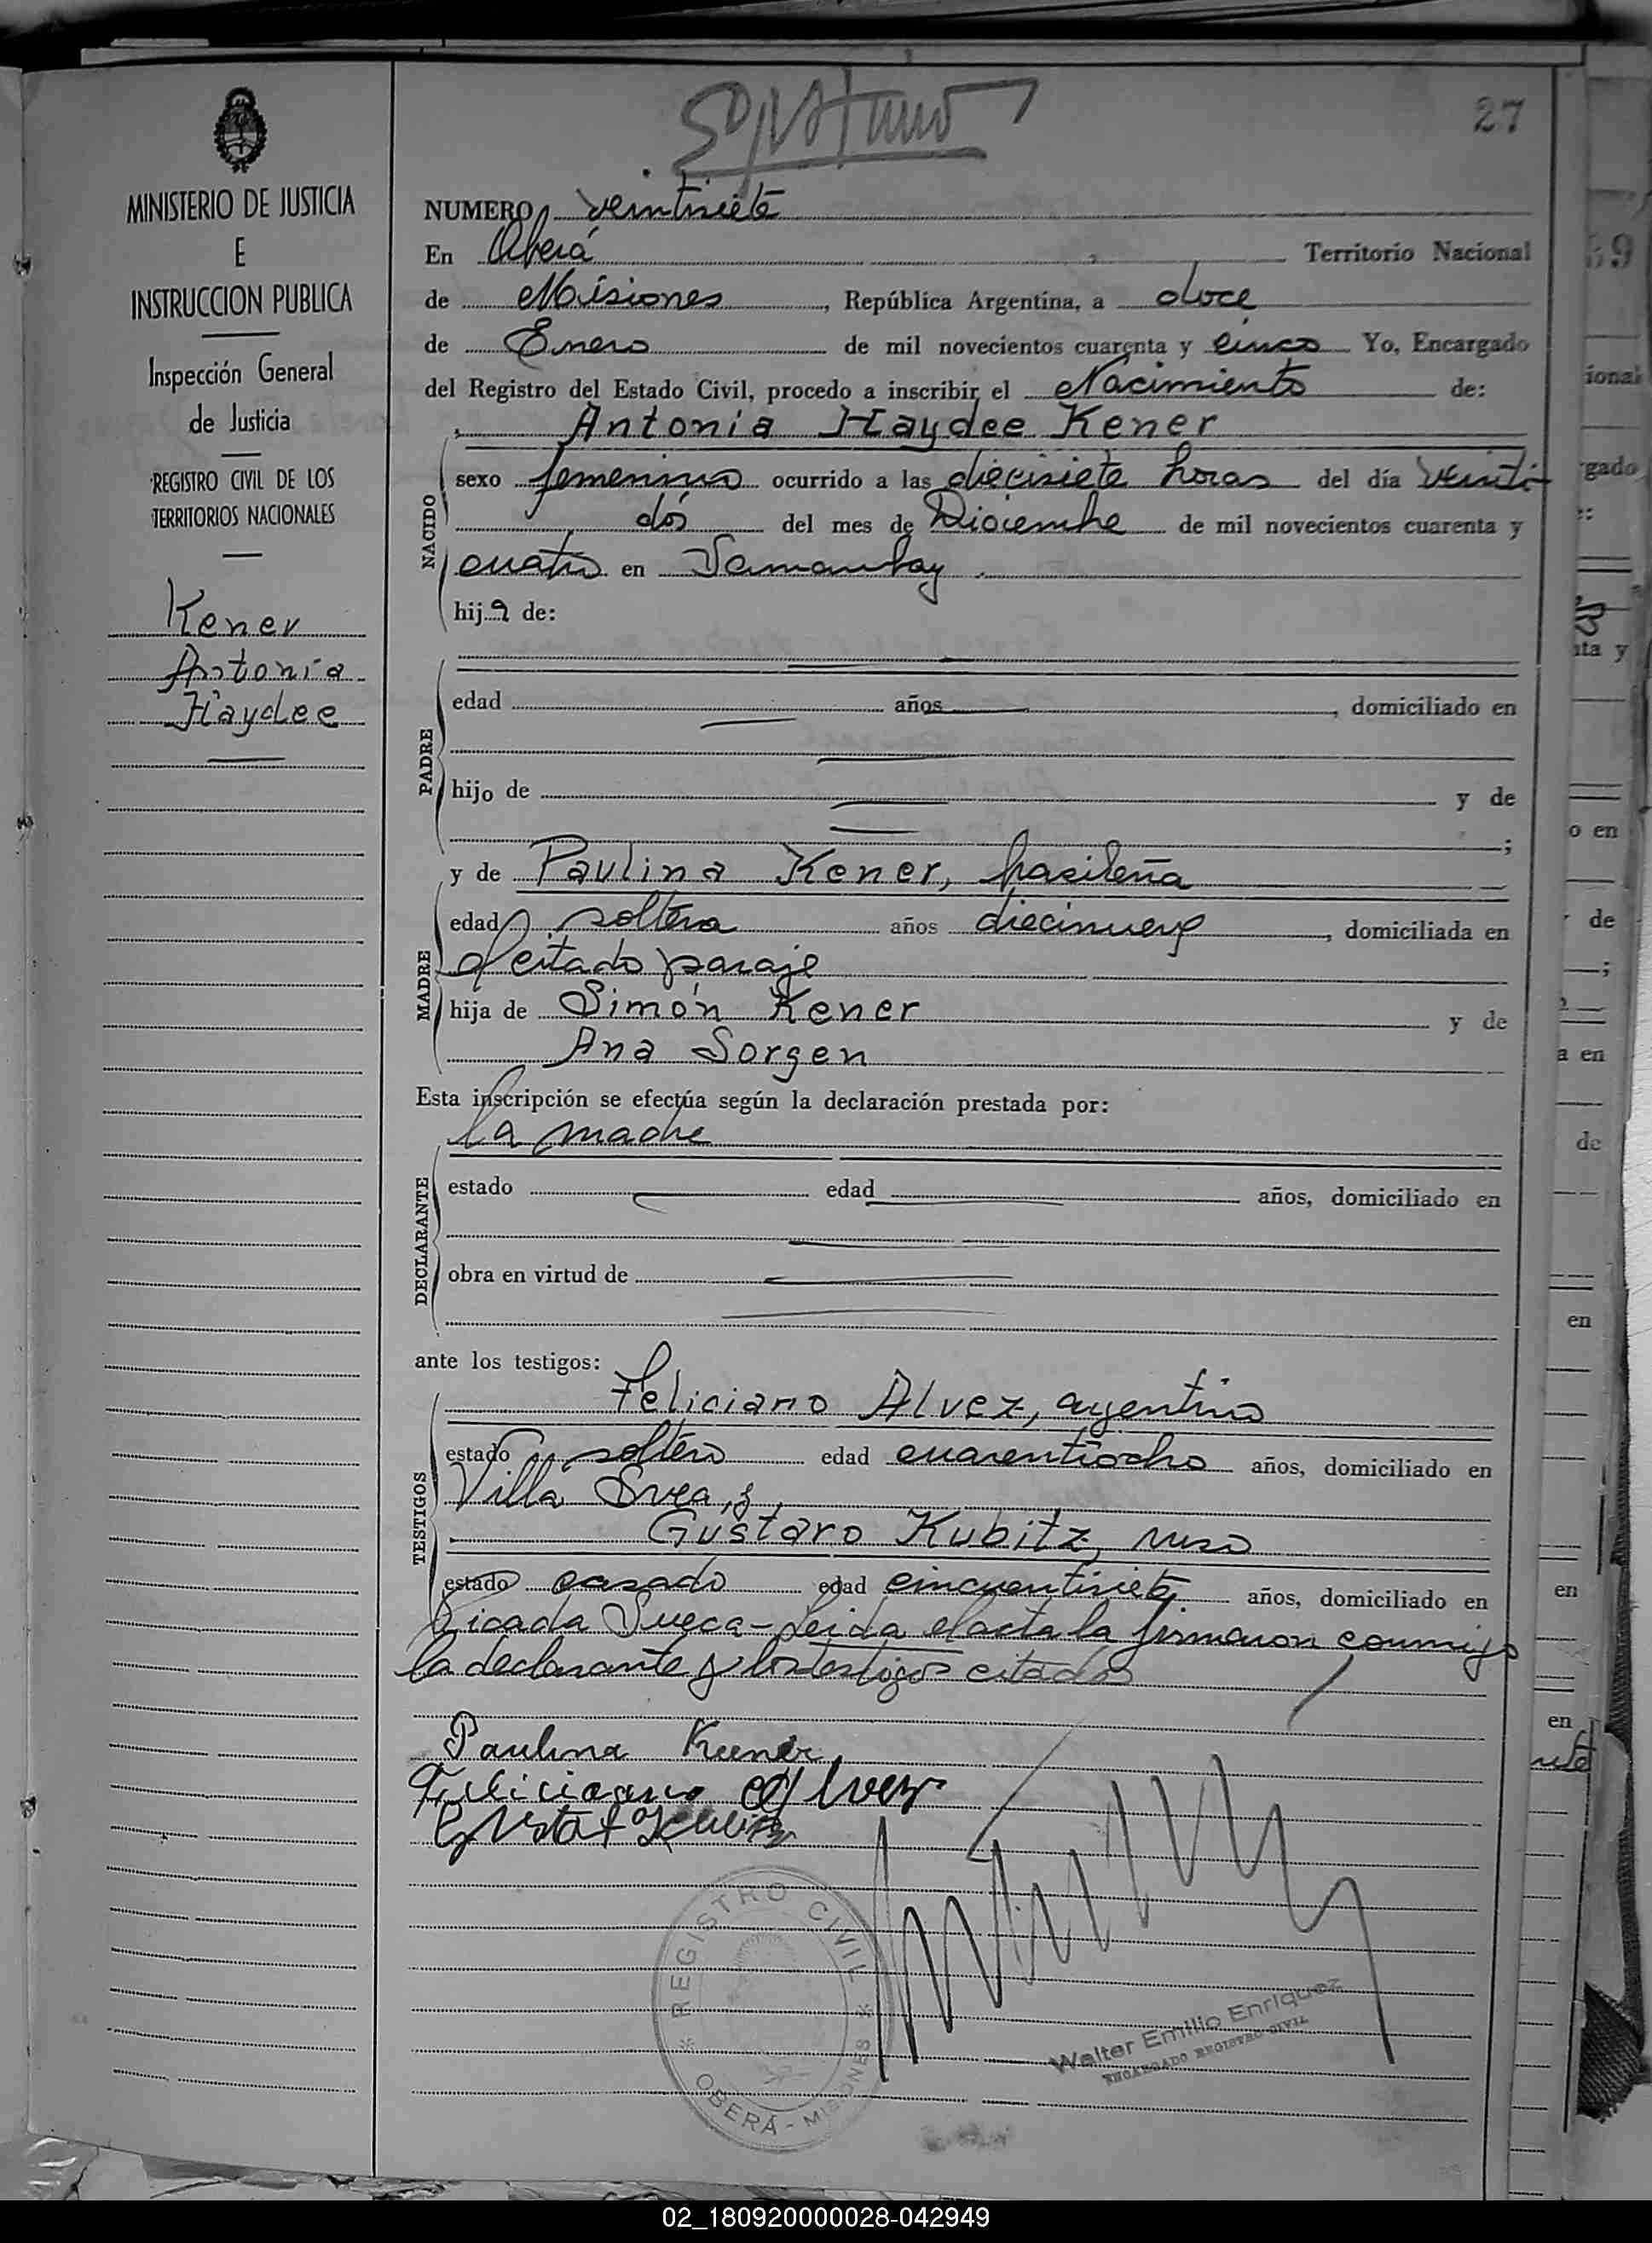 27
MINISTERIO DE JUSTICIA
E
INSTRUCCION PUBLICA
Inspección General
de Justicia
REGISTRO CIVIL DE LOS
TERRITORIOS NACIONALES
Kener
Antonia
Haydee
NUMERO veintisiete
En Oberá Territorio Nacional
de Misiones, República Argentina, a doce
de Enero de mil novecientos cuarenta y cinco Yo, Encargado
del Registro del Estado Civil, procedo a inscribir el Nacimiento de:
Antonia Haydee Kener
NACIDO
sexo femenino ocurrido a las diecisiete horas del día veinti-
dós del mes de Diciembre de mil novecientos cuarenta y
cuatro en Samambay
hija de:
PADRE
edad años, domiciliado en
hijo de y de
;
y de Paulina Kener, brasileña
MADRE
edad soltera años diecinueve, domiciliada en
el citado paraje
hija de Simón Kener y de
Ana Sorgen
Esta inscripción se efectúa según la declaración prestada por:
la madre
DECLARANTE
estado edad años, domiciliado en
obra en virtud de
ante los testigos:
TESTIGOS
Feliciano Alvez, argentino
estado soltero edad cuarentiocho años, domiciliado en
Villa Svea, y
Gustavo Kubitz, ruso
estado casado edad cincuentisiete años, domiciliado en
Picada Sueca - Leida el acta la firmaron conmigo
la declarante y los testigos citados
Paulina Keener
Feliciano Alvez
Gustaf Kubitz
REGISTRO CIVIL
OBERÁ - MISIONES
Walter Emilio Enriquez
ENCARGADO REGISTRO CIVIL
59
ional
gado
nta y
o en
de
;
a en
de
en
en
en
02_180920000028-042949